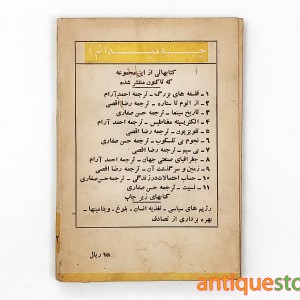 چه میدانم؟
کتابهائی از این مجموعه
که تاکنون منتشر شده
۱ ـ فلسفه های بزرگ ـ ترجمه احمد آرام
۲ ـ از اتوم تا ستاره ـ ترجمه رضا اقصی
۳ ـ تاریخ سینما ـ ترجمه حسن صفاری
۴ ـ الکتریسیته مغناطیس ـ ترجمه احمد آرام
۵ ـ تلویزیون ـ ترجمه رضا اقصی
۶ ـ نجوم بی تلسکوپ ـ ترجمه حسن صفاری
۷ ـ بی سیم ـ ترجمه رضا اقصی
۸ ـ جغرافیای صنعتی جهان ـ ترجمه احمد آرام
۹ ـ زمین و سرگذشت آن ـ ترجمه رضا اقصی
۱۰ ـ حساب احتمالات در زندگی ـ ترجمه حسن صفاری
۱۱ ـ نسبیت ـ ترجمه حسن صفاری
کتابهای زیر چاپ
رژیم های سیاسی ـ تغذیه انسان ـ بلوغ ـ ویتامینها ـ
بهره برداری از تصادف
ریال
antiquesto